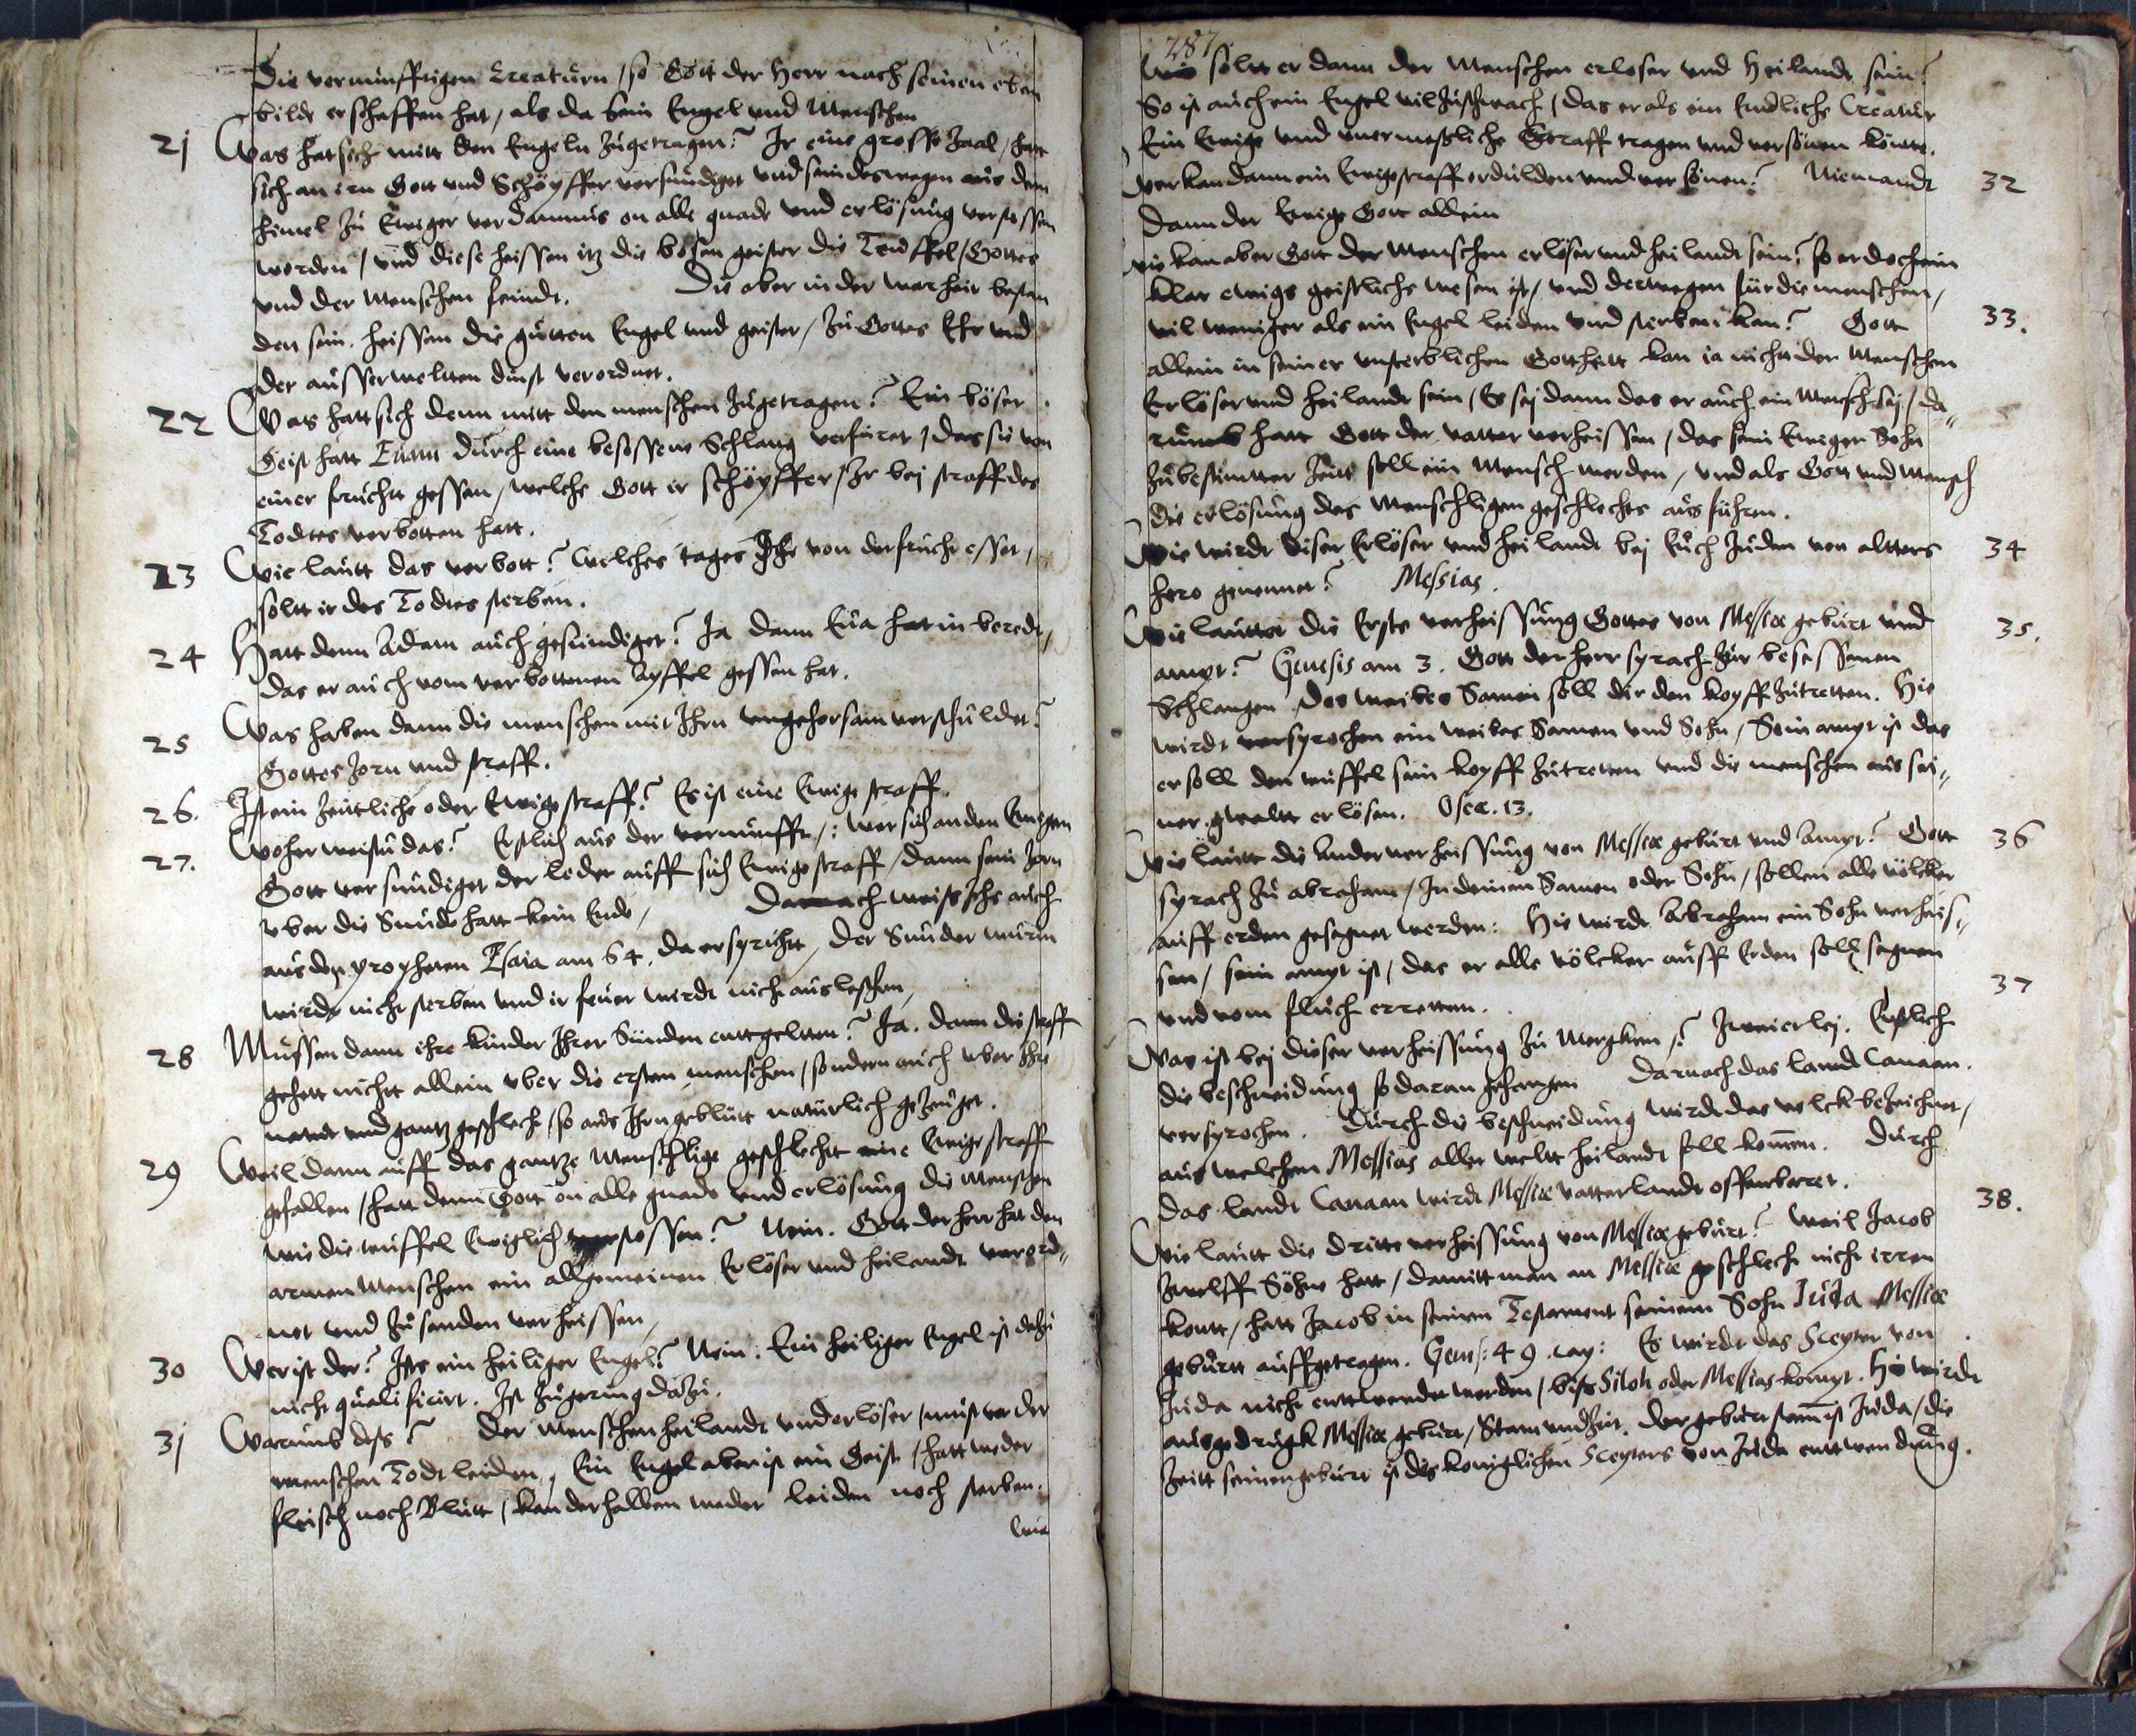 Die vernünfftigen Creaturn / so Gott der Herr nach seinen eben
bilde erschaffen hat / als da sein Engel und Menschen
21 Was hat sich mitt den Engeln zugetragen? Ir eine grosse zaal / hatt
sich an irn Gott und Schöpffer versundiget und sein deswegen aus dem
himel zu Ewiger verdamnus on alle gnade und erlösung verstossen
worden / und diese heissen itz die bösen geister die Teuffel / Gottes
und der Menschen feindt. Die aber in der warheit bestan
den sein. heissen die gutten Engel und geister / zu Gottes Ehr und
der ausserweltten dinst verordnet.
22 Was hatt sich denn mitt den menschen zugetragen? Ein böser
Geist hatt Euam durch eine besessene Schlang verfüret / das sie von
einer frucht gessen / welche Gott ir schöpffer / Ir bej straff des
Todtes verbotten hatt.
23 Wie lautt das verbott? Welches tages Ihr von der frucht esset /
soltt ir des Todtes sterben.
24 Hatt denn Adam auch gesundiget? Ja dann Eua hat in beredt /
das er auch vom verbottenen Apffel gessen hat.
25 Was haben dann die menschen mit Ihrn ungehorsam verschuldet?
Gottes zorn und straff.
26. Ist ein zeutliche oder Ewige straff? Es ist eine Ewige straff.
27. Woher weistu das? Erstlich aus der vernunfft /: wer sich an den Ewigen
Gott versundiget der ledet auff sich Ewige straff / dann sein zorn
vber die Sunde hatt kein Ende / Darnach weiss ichs auch
aus den propheten Esaia am 64. da er spricht / Der Sunder wurm
wirdt nicht sterben und ir feuer werdt nicht auslesschen,
28 Mussen dann ihre kinder Ihrer Sünden enttgeltten? Ja. dann die straff
gehett nichtt allein vber die ersten menschen / sondern auch vber ihre
natur und gantz geschlecht / so aus Ihrn geblütt natürlich gezeuget.
29 Weil dann auff das gantze Menschlige geschlechtt eine Ewige straff
gefallen / hatt denn Gott on alle gnade und erlösung die Menschen
wie die teuffel Ewiglich verstossen? Nein. Gott der herr hat den
armen Menschen ein allgemeinen Erlöser und heilandt verord¬
net und zu senden verheissen,
30 Wer ist der? Ists ein heiliger Engel? Nein. Ein heiliger Engel ist dazu
nicht qualificirt. Ist zu gering dazu.
31 Warumb dess? Der Menschen heilandt und erlöser / must vor der
menschen Todt leiden, Ein Engel aber ist ein Geist / hatt weder
fleisch noch Blutt / kan derhalben weder leiden noch sterben.
Wie
287
Wie soltt er dann der Menschen erloser und Heilandt sein?
So ist auch ein Engel vil zu schwach / das er als ein Endliche Creatur
Ein Ewige und unermessliche Straff tragen und versönen köntte.
Wer kan dann ein Ewige straff erdulden und versönen? Niemandt 32
Dann der Ewige Gott allein
Wie kan aber Gott der Menschen erlöser und heilandt sein? so er doch ein
klar ewigs geistlichs wesen ist / und derwegen für die menschen /
vil weniger als ein Engel leiden und sterben kan? Gott 33.
allein in seiner unsterblichen Gottheitt kan ia nicht der Menschen
Erlöser und heilandt sein / Es sej dann das er auch ein Mensch sej / da¬
rumb hatt Gott der vatter verheissen / das sein Ewiger Sohn
zu bestimtter zeitt soll ein Mensch werden / und als Gott und Mensch
die erlösung des Menschligen geschlechts ausführen.
Wie wirdt diser Erlöser und heilandt bej Euch Juden von altters 34
hero genennet? Messias.
Wie lauttet die Erste verheissung Gottes von Messiæ geburt und 35.
ampt? Genesis am 3. Gott der herr sprach zur besessenen
Schlangen Des weibes Samen soll dir den kopff zutretten. Hie
wirdt versprochen ein weibes Samen und Sohn / Sein ampt ist das
er soll den teuffel sein kopff zutretten und die menschen aus sei¬
ner gwaltt erlösen. Oseæ. 13.
Wie lautt die Ander verheissung von Messiæ geburt und Ampt? Gott 36
sprach zu abraham / In deinen Samen oder Sohn / sollen alle völcker
auff erden gesegnet werden: Hie wirdt Abraham ein Sohn verheis¬
sen / sein ampt ist / das er alle völcker auff Erden soll segnen
und vom fluch erretten. 37
Was ist bej dieser verheissung zu Mergken? Zweierlej. Erstlich
die beschneidung so daran gehangen Darnach das landt Canaan.
versprochen. Durch die beschneidung wirdt das volck bezeichnet /
aus welchen Messias aller weltt heilandt soll komen. Durch
das landt Canaan wirdt Messiæ vatterlandt offenbaret.
Wie lautt die dritte verheissung von Messiæ geburt? Weil Jacob 38.
zwelff Söhne hatt / damitt man an Messiæ geschlecht nicht irren
kontt / hatt Jacob in seinem Testament seinem Sohn Juda Messiæ
geburtt auffgetragen. Gens: 49. cap: Es wirdt das Scepter von
Juda nicht enttwendet werden / biss Siloh oder Messias kompt. Hie wirdt
ausgedrugk Messiæ geburt / Stam und zeit. Der geburt stam ist Juda / die
zeitt seiner geburt ist des königlichen Scepters von Juda enttwendung.